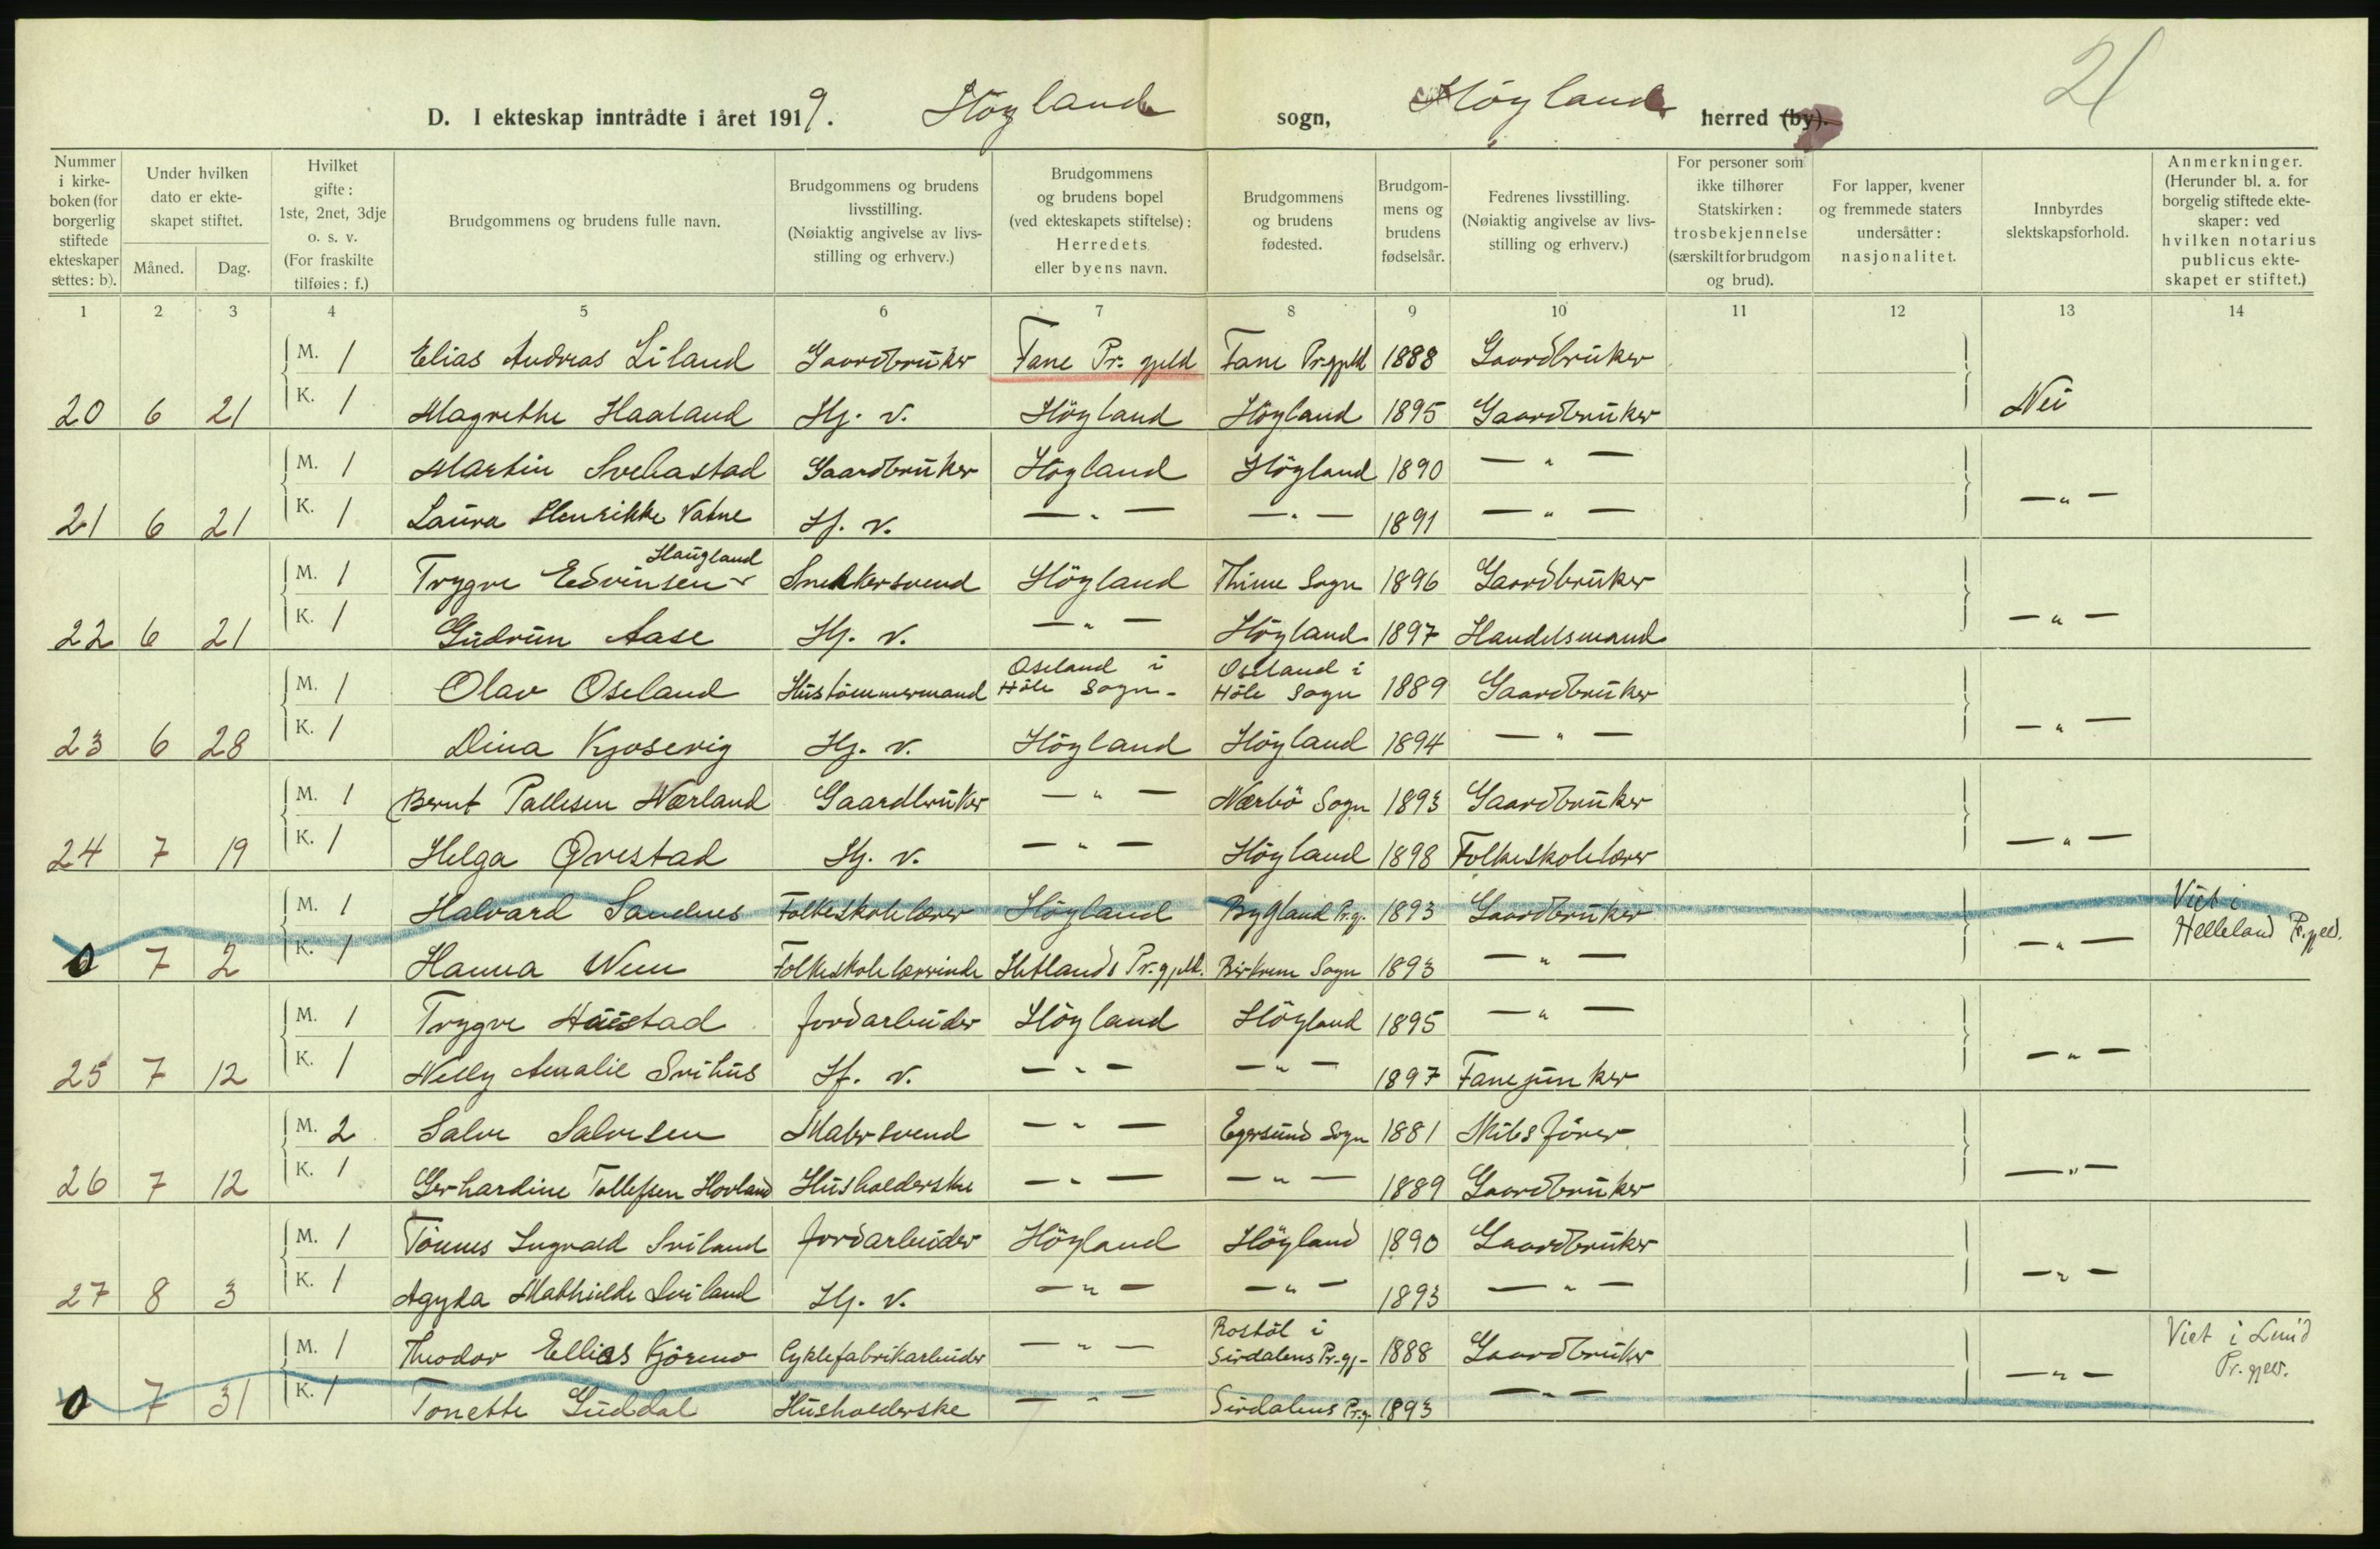 21
D. I ekteskap inntrådte i året 1919. Höyland sogn, Höyland herred (by).
Nummer i kirkeboken (for borgerlig stiftede ekteskaper settes: b). | Under hvilken dato er ekteskapet stiftet. Måned. Dag. | Hvilket gifte: 1ste, 2net, 3dje o. s. v. (For fraskilte tilføies: f.) | Brudgommens og brudens fulle navn. | Brudgommens og brudens livsstilling. (Nøiaktig angivelse av livsstilling og erhverv.) | Brudgommens og brudens bopel (ved ekteskapets stiftelse): Herredets eller byens navn. | Brudgommens og brudens fødested. | Brudgommens og brudens fødselsår. | Fedrenes livsstilling. (Nøiaktig angivelse av livsstilling og erhverv.) | For personer som ikke tilhører Statskirken: trosbekjennelse (særskilt for brudgom og brud). | For lapper, kvener og fremmede staters undersåtter: nasjonalitet. | Innbyrdes slektskapsforhold. | Anmerkninger. (Herunder bl. a. for borgelig stiftede ekteskaper: ved hvilken notarius publicus ekteskapet er stiftet.)
1 2 3 4 5 6 7 8 9 10 11 12 13 14
M. 1 Elias Andreas Liland Gaardbruker Fane Pr. gjeld Fane Pr.gjeld 1888 Gaardbruker
20 6 21 K. 1 Magrethe Haaland Hj. v. Höyland Höyland 1895 Gaardbruker Nei
M. 1 Martin Svebastad Gaardbruker Höyland Höyland 1890 — " —
21 6 21 K. 1 Laura Henrikke Vatne Hj. v. — " — — " — 1891 — " — — " —
Haugland
M. 1 Trygve Edvinsen Snekkersvend Höyland Thime Sogn 1896 Gaardbruker
22 6 21 K. 1 Gudrun Aase Hj. v. — " — Höyland 1897 Handelsmand — " —
Oseland i Oseland i
M. 1 Olav Oseland Hustömmermand Höle Sogn Höle Sogn 1889 Gaardbruker
23 6 28 K. 1 Dina Kjosevig Hj. v. Höyland Höyland 1894 — " — — " —
M. 1 Bernt Pallesen Nærland Gaardbruker — " — Nærbö Sogn 1893 Gaardbruker
24 7 19 K. 1 Helga Qvestad Hj. v. — " — Höyland 1898 Folkeskolelærer — " —
M. 1 Halvard Sandnes Folkeskolelærer Höyland Bygland Pr.g. 1893 Gaardbruker Viet i
0 7 2 K. 1 Hanna Wem Folkeskolelærerinde Hetlands Pr. gjeld. Birkrem Sogn 1893 — " — — " — Helleland Pr.gjeld.
M. 1 Trygve Haustad Jordarbeider Höyland Höyland 1895 — " —
25 7 12 K. 1 Nelly Amalie Svihus Hj. v. — " — — " — 1897 Fanejunker — " —
M. 2 Salve Salvesen Malersvend — " — Egersund Sogn 1881 Skibsförer
26 7 12 K. 1 Gerhardine Tollefsen Hovland Husholderske — " — — " — 1889 Gaardbruker — " —
M. 1 Tönnes Ingvald Sviland Jordarbeider Höyland Höyland 1890 Gaardbruker
27 8 3 K. 1 Agyda Mathilde Sviland Hj. v. — " — — " — 1893 — " — — " —
Rostöl i Viet i Lund
M. 1 Theodor Ellias Kjörmo Cyklefabrikarbeider — " — Sirdalens Pr.gj. 1888 Gaardbruker Pr. gjeld.
0 7 31 K. 1 Tonette Guddal Husholderske — " — Sirdalens Pr.g. 1893 — " — — " —